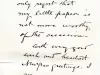 only regret that
my little paper is
not more worthy
of the occasion.
and very good
wish and heartiest
New Year greetings. I